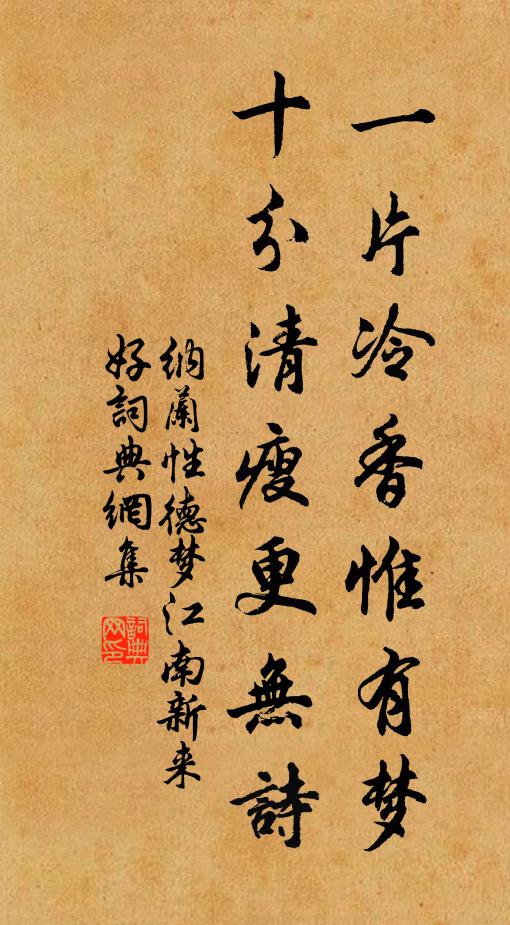 一片冷香惟有梦
十分清瘦更無詩
纳蘭性德梦江南新来
好詞典網集
詞典网印